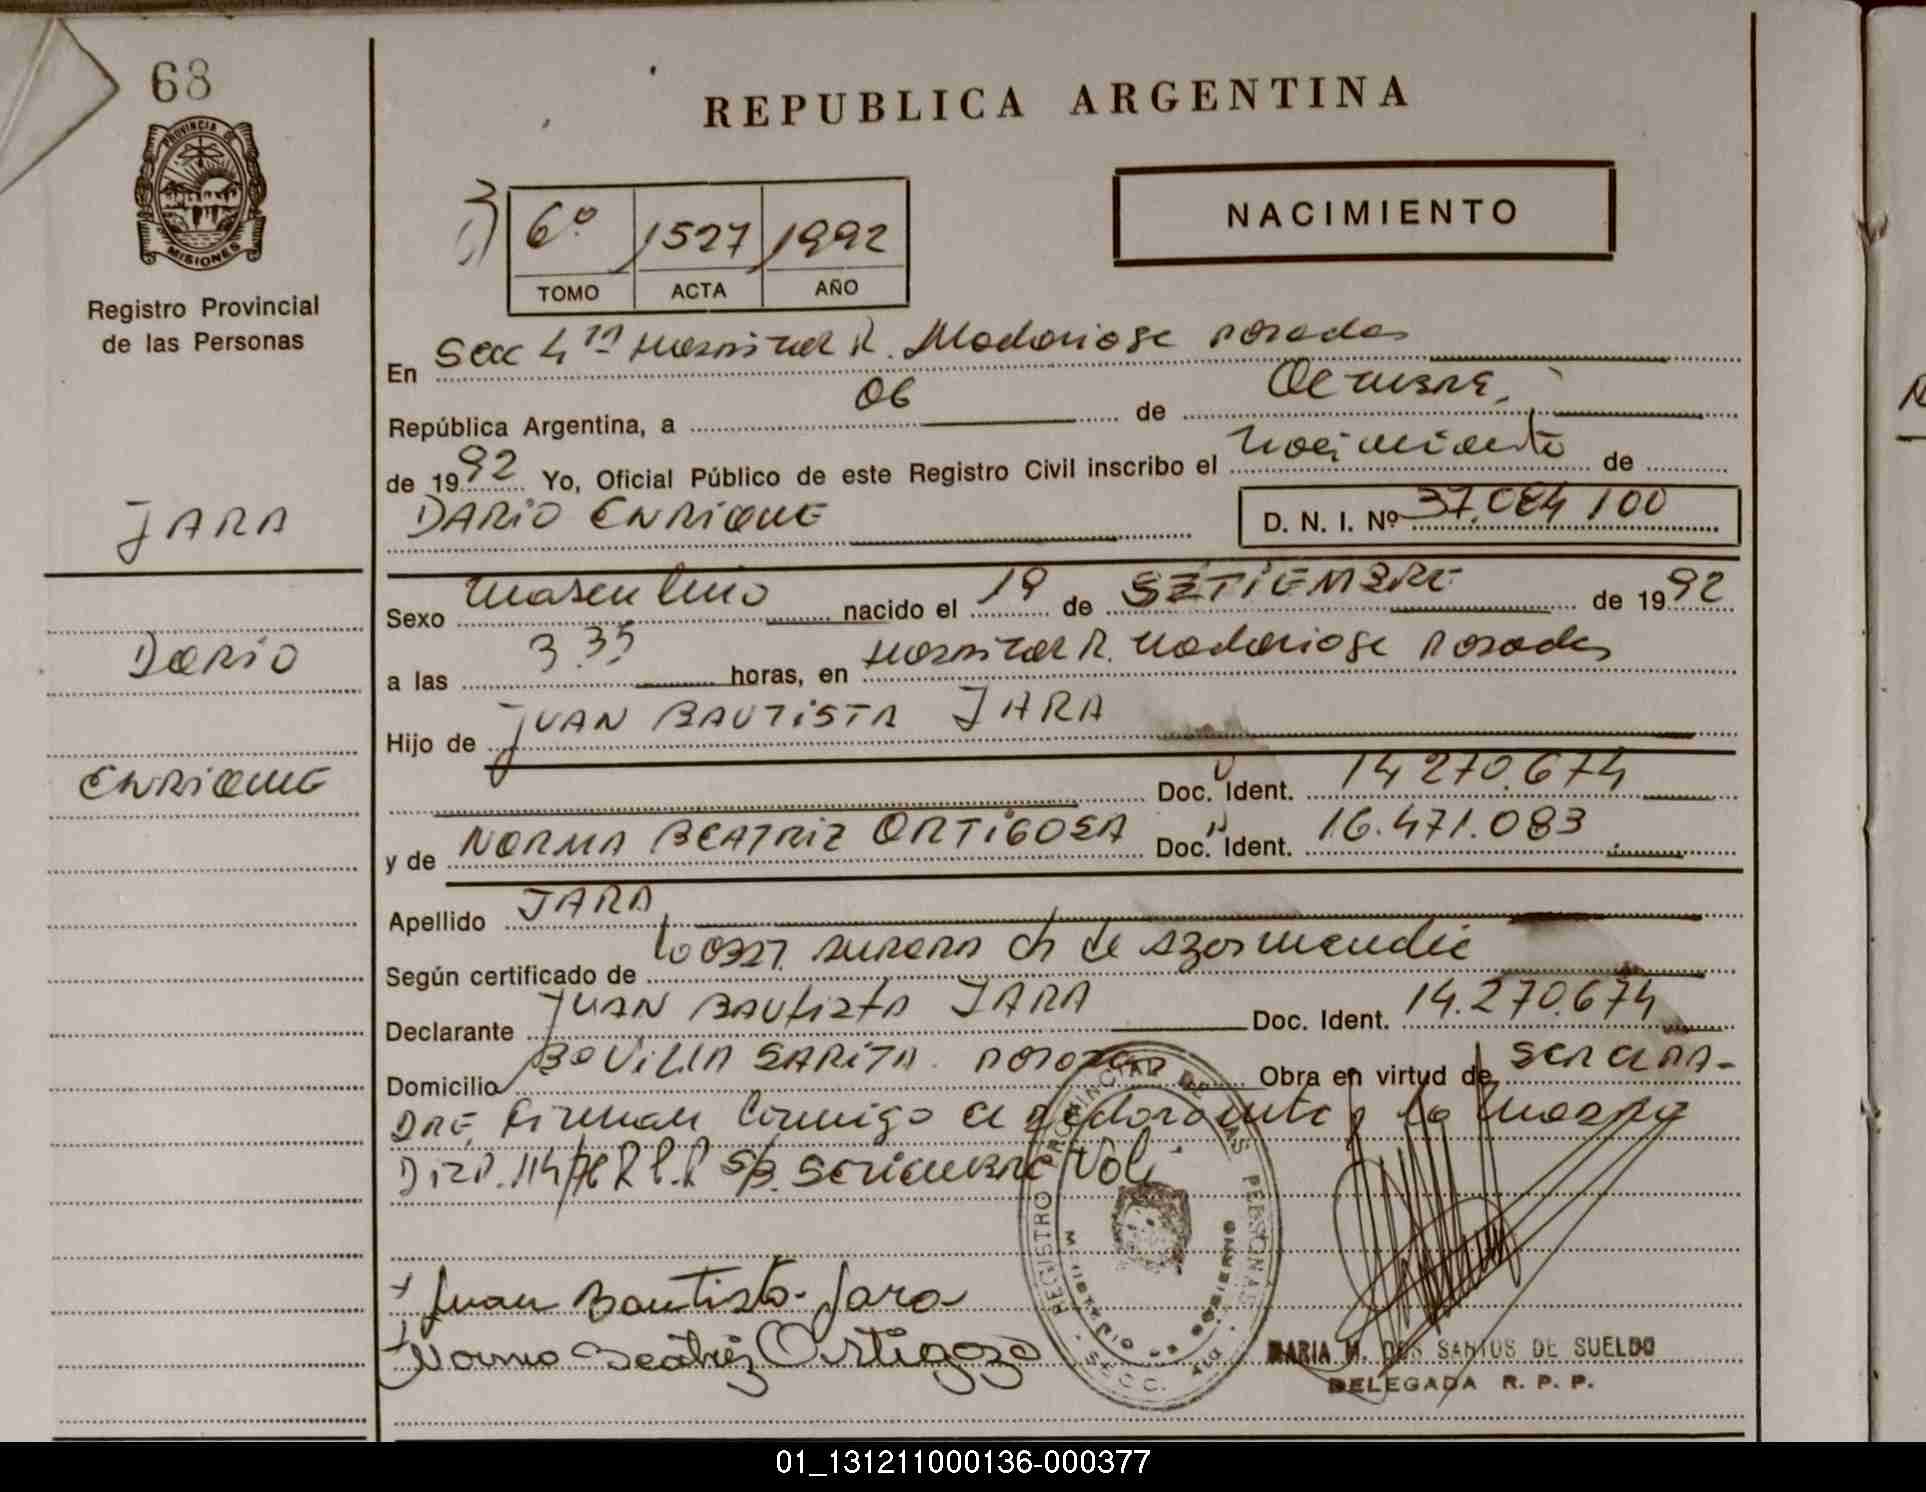 68
PROVINCIA DE
MISIONES
Registro Provincial
de las Personas
JARA
DARIO
ENRIQUE
REPUBLICA ARGENTINA
NACIMIENTO
6º 1527 1992
TOMO ACTA AÑO
En Secc 4ta Hospital R. Madariaga Posadas
República Argentina, a 06 de Octubre
de 1992 Yo, Oficial Público de este Registro Civil inscribo el Nacimiento de
DARIO ENRIQUE D. N. I. Nº 37.084 100
Sexo Masculino nacido el 19 de SETIEMBRE de 1992
a las 3.35 horas, en Hospital R. Madariaga Posadas
Hijo de JUAN BAUTISTA JARA
Doc. Ident. 14 270.674
y de NORMA BEATRIZ ORTIGOZA Doc. Ident. 16.471.083
Apellido JARA
Según certificado de de Azormendie
Declarante JUAN BAUTISTA JARA Doc. Ident. 14.270.674
Domicilio Bº VILLA SARITA. POSADAS Obra en virtud de SER EL PA-
DRE, Firman Conmigo el declarante y la Madre
DISP. 114/76 R.P.P S/B. SETIEMBRE Vale
REGISTRO PROVINCIAL DE LAS PERSONAS
MINISTERIO DE GOBIERNO
Juan Bautista Jara
Norma Beatriz Ortigoza
MARIA M. DOS SANTOS DE SUELDO
DELEGADA R. P. P.
01_131211000136-000377